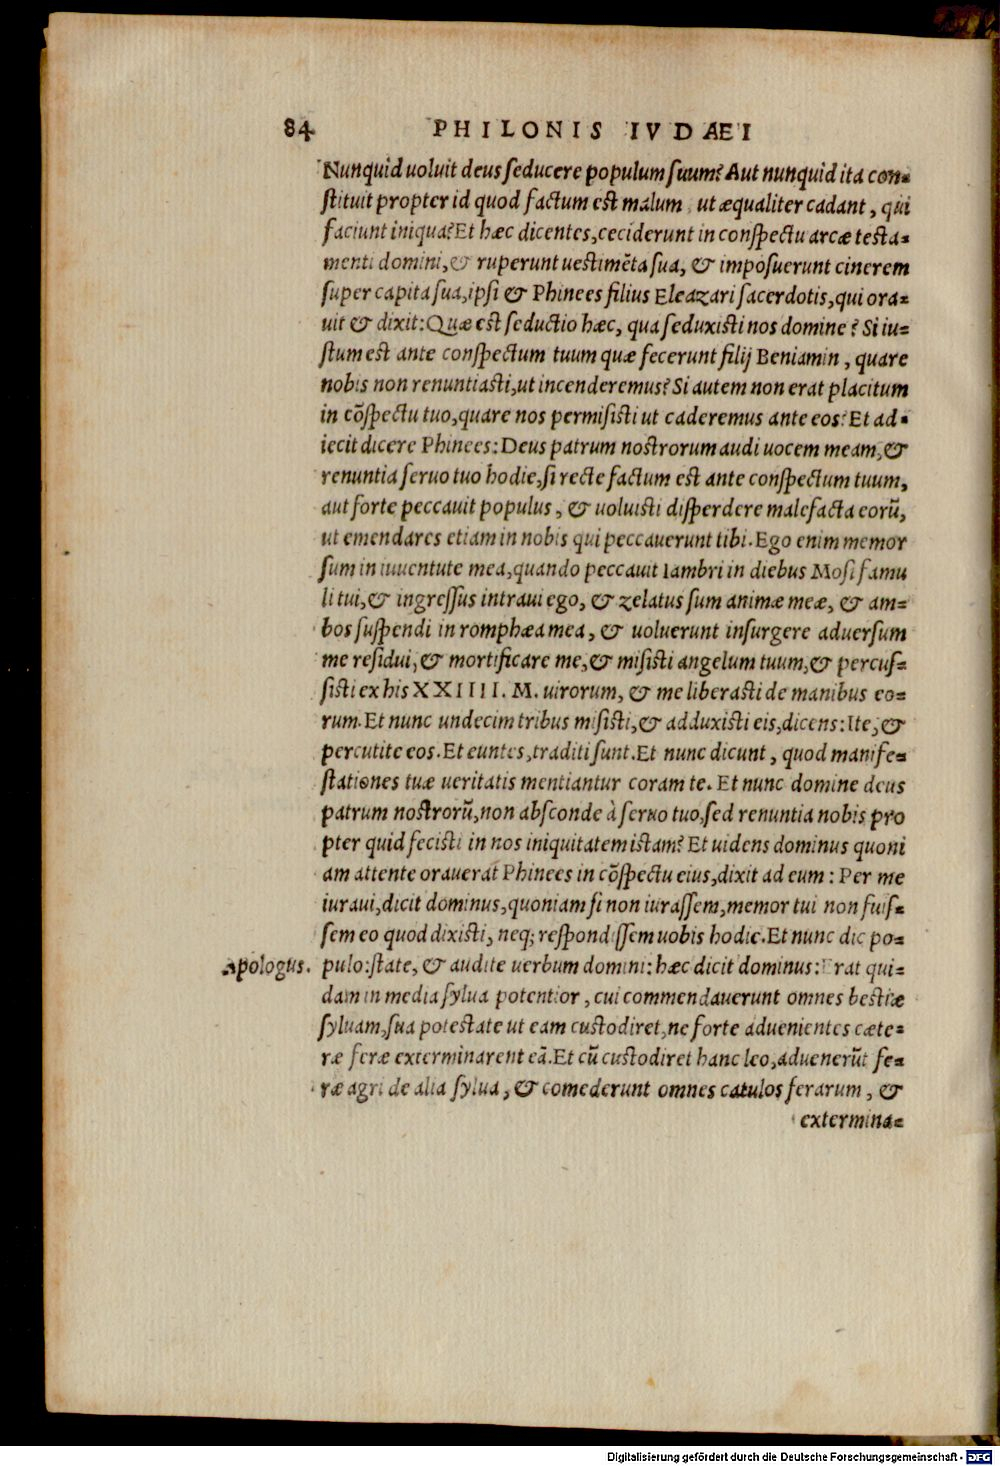 84 PHILONIS IVDAEI
Nunquid uoluit deus seducere populum suum? Aut nunquid ita con-
stituit propter id quod factum est malum, ut æqualiter cadant, qui
faciunt iniqua? Et hæc dicentes, ceciderunt in conspectu arcæ testa-
menti domini, & ruperunt uestimēta sua, & imposuerunt cinerem
super capita sua, ipsi & Phinees filius Eleazari sacerdotis, qui ora-
uit & dixit: Quæ est seductio hæc, qua seduxisti nos domine? Si iu-
stum est ante conspectum tuum quæ fecerunt filij Beniamin, quare
nobis non renuntiasti, ut incenderemus? Si autem non erat placitum
in cōspectu tuo, quare nos permisisti ut caderemus ante eos? Et ad-
iecit dicere Phinees: Deus patrum nostrorum audi uocem meam, &
renuntia seruo tuo hodie, si recte factum est ante conspectum tuum,
aut forte peccauit populus, & uoluisti disperdere malefacta eorū,
ut emendares etiam in nobis qui peccauerunt tibi. Ego enim memor
sum in iuuentute mea, quando peccauit Iambri in diebus Mosi famu
li tui, & ingressus intraui ego, & zelatus sum animæ meæ, & am-
bos suspendi in romphæa mea, & uoluerunt insurgere aduersum
me residui, & mortificare me, & misisti angelum tuum, & percus-
sisti ex his XXIIII. M. uirorum, & me liberasti de manibus eo-
rum. Et nunc undecim tribus misisti, & adduxisti eis, dicens: Ite, &
percutite eos. Et euntes, traditi sunt. Et nunc dicunt, quod manife-
stationes tuæ ueritatis mentiantur coram te. Et nunc domine deus
patrum nostrorū, non absconde à seruo tuo, sed renuntia nobis pro
pter quid fecisti in nos iniquitatem istam? Et uidens dominus quoni
am attente orauerat Phinees in cōspectu eius, dixit ad eum: Per me
iuraui, dicit dominus, quoniam si non iurassem, memor tui non fuis-
sem eo quod dixisti, neq; respondissem uobis hodie. Et nunc dic po-
Apologus. pulo: state, & audite uerbum domini: hæc dicit dominus: Erat qui-
dam in media sylua potentior, cui commendauerunt omnes bestiæ
syluam, sua potestate ut eam custodiret, ne forte aduenientes cæte-
ræ feræ exterminarent eā. Et cū custodiret hanc leo, aduenerūt fe-
ræ agri de alia sylua, & comederunt omnes catulos ferarum, &
extermina-
Digitalisierung gefördert durch die Deutsche Forschungsgemeinschaft - DFG